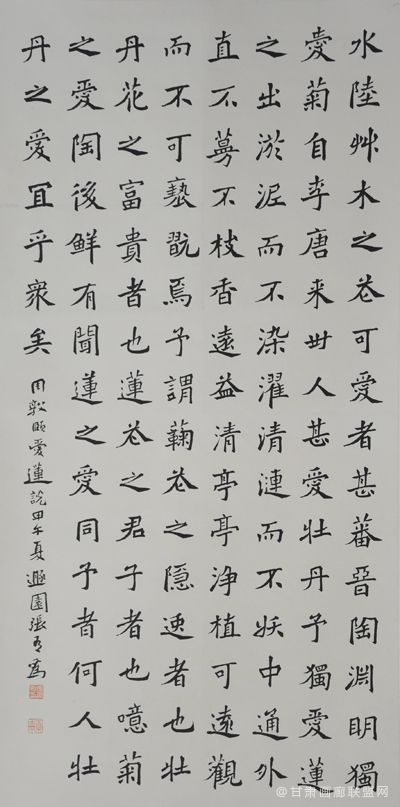 水陸艸木之花可愛者甚蕃晉陶淵明獨
愛菊自李唐来世人甚愛牡丹予獨愛蓮
之出淤泥而不染濯清漣而不妖中通外
直不蔓不枝香遠益清亭亭淨植可遠觀
而不可褻翫焉予謂蘜花之隐逸者也牡
丹花之富貴者也蓮花之君子者也噫菊
之愛陶後鮮有聞蓮之愛同予者何人牡
丹之愛宜乎衆矣
周敦頤愛蓮說甲午夏遯園張
@甘肃画廊联盟网